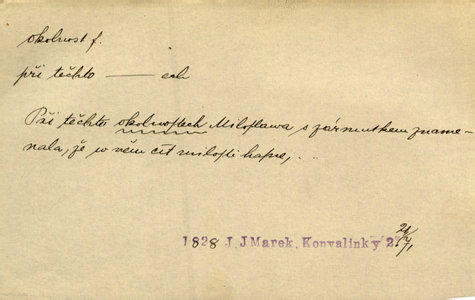 okolnost f.
při těchto —— ech
Při těchto okolnostech Miloslawa s zármutkem zname-
nala, že w něm cit milosti hasne, . .
1828 J. J Marek, Konvalinky 2